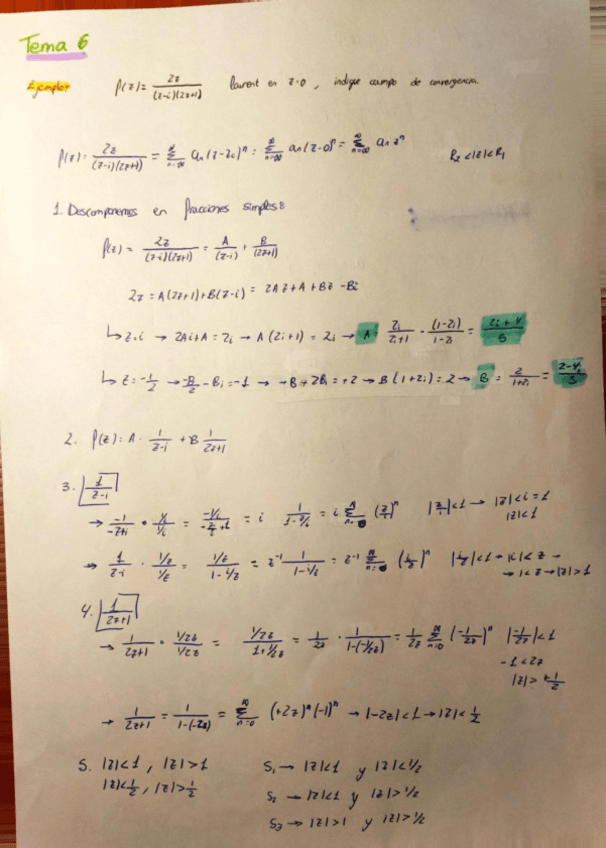 Tema 6
Ejemplo: f(z) = 2z/((z-i)(2z+1)) Laurent en z=0, indique campo de convergencia.
f(z) = 2z/((z-i)(2z+1)) = ∑ an(z-z0)^n = ∑ an(z-0)^n = ∑ an z^n R2<|z|<R1
1. Descomponemos en fracciones simples:
f(z) = 2z/((z-i)(2z+1)) = A/(z-i) + B/(2z+1)
2z = A(2z+1)+B(z-i) = 2Az+A+Bz-Bi
↳ z=i → 2Ai+A=2i → A(2i+1) = 2i → A = 2i/(2i+1) · (1-2i)/(1-2i) = (2i+4)/5
↳ z=-1/2 → -B/2 - Bi = -1 → +B+2Bi = +2 → B(1+2i) = 2 → B = 2/(1+2i) = (2-4i)/5
2. f(z) = A · 1/(z-i) + B 1/(2z+1)
3. 1/(z-i)
→ -1/(-z+i) · (1/i)/(1/i) = (-1/i)/(-z/i+1) = i 1/(1-z/i) = i ∑ (z/i)^n |z/i|<1 → |z|<i=1
|z|<1
→ 1/(z-i) · (1/z)/(1/z) = (1/z)/(1-i/z) = z^-1 1/(1-i/z) = z^-1 ∑ (i/z)^n |i/z|<1 → |i|<z →
→ 1<z → |z|>1
4. 1/(2z+1)
→ 1/(2z+1) · (1/2z)/(1/2z) = (1/2z)/(1+1/2z) = 1/2z · 1/(1-(-1/2z)) = 1/2z ∑ n=0 ∞ (-1/2z)^n |-1/2z|<1
-1<2z
|z|>+1/2
→ 1/(2z+1) = 1/(1-(-2z)) = ∑ n=0 ∞ (+2z)^n (-1)^n → |-2z|<1 → |z|<1/2
5. |z|<1, |z|>1 S1 → |z|<1 y |z|<1/2
|z|<1/2, |z|>1/2 S2 → |z|<1 y |z|>1/2
S3 → |z|>1 y |z|>1/2